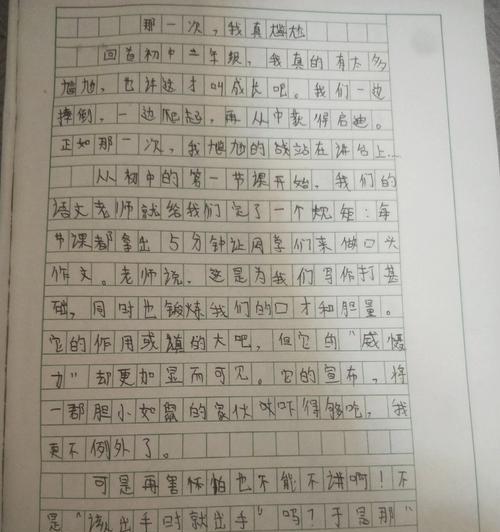 那一次，我真尴尬
回首初中二年级，我真的有太多
尴尬，也许这才叫成长吧。我们一边
摔倒，一边爬起，再从中获得启迪。
正如那一次，我尴尬的战站在讲台上…
从初中的第一节课开始，我们的
语文老师就给我们定了一个规矩：每
节课都拿出5分钟让同学们来做口头
作文。老师说，这是为我们写作打基
础，同时也锻炼我们的口才和胆量。
它的作用或许真的大吧，但它的“威慑
力”却更加显而可见。它的宣布，将
一群胆小如鼠的家伙吓得够呛，我
更不例外了。
可是再害怀怕也不能不讲啊！不
是“该出手时就出手”吗？于是那